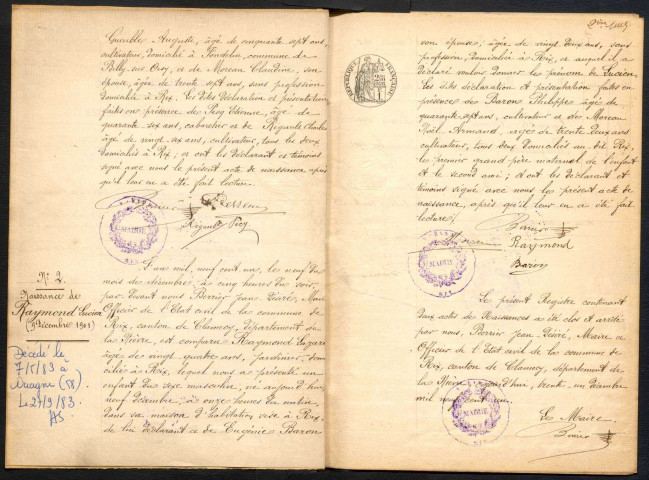 Gueuble Auguste, âgé de cinquante sept ans,
cultivateur, domicilié à Fondelin, commune de
Billy-sur-Oisy, et de Moreau Claudine, son
épouse, âgée de trente sept ans, sans profession
domiciliée à Rix. Les dites déclaration et présentation
faites en présence de Picq Etienne, âgé de
quarante six ans, cabaretier et de Regnault Charles
âgé de vingt six ans, cultivateur, tous les deux
domiciliés à Rix; et ont les déclarant et témoins
signé avec nous le présent acte de naissance après
qu'il leur en a été fait lecture.
Picq
MAIRIE
N° 2.
Naissance de
Raymond Lucien
(9 Décembre 1901)
Décédé le
7/5/83 à
(58).
Le 27/9/83.
AS
L'an mil neuf cent un, le neuf du
mois de Décembre à cinq heures du soir,
par devant nous Berrier Jean Désiré, Maire
Officier de l'Etat civil de la commune de
Rix, canton de Clamecy, département de
la Nièvre, est comparu Raymond Lazare
âgé de vingt quatre ans, jardinier, domi-
cilié à Rix, lequel nous a présenté un
enfant du sexe masculin, né aujourd'hui
neuf décembre, à onze heures du matin,
dans sa maison d'habitation sise à Rix,
de lui déclarant et de Eugénie Baron
RÉPUBLIQUE FRANÇAISE
son épouse, âgée de vingt deux ans, sans
profession, domiciliée à Rix, et auquel il a
déclaré vouloir donner le prénom de Lucien.
Les dites déclaration et présentation faites en
présence des Baron Philippe âgé de
quarante sept ans, cultivateur et des Moreau
Noël Armand, âgé de trente deux ans
cultivateur, tous deux domiciliés au dit Rix,
le premier grand père maternel de l'enfant
et le second ami; et ont les déclarant et
témoins signé avec nous le présent acte de
naissance, après qu'il leur en a été fait
lecture.
Berrier
Raymond
Baron
MAIRIE
Le présent Registre contenant
deux actes de Naissances a été clos et arrêté
par nous, Berrier Jean Désiré, Maire et
Officier de l'Etat civil de la commune de
Rix, canton de Clamecy, département de
la Nièvre aujourd'hui, trente un décembre
mil neuf cent un.
Le Maire,
Berrier
MAIRIE